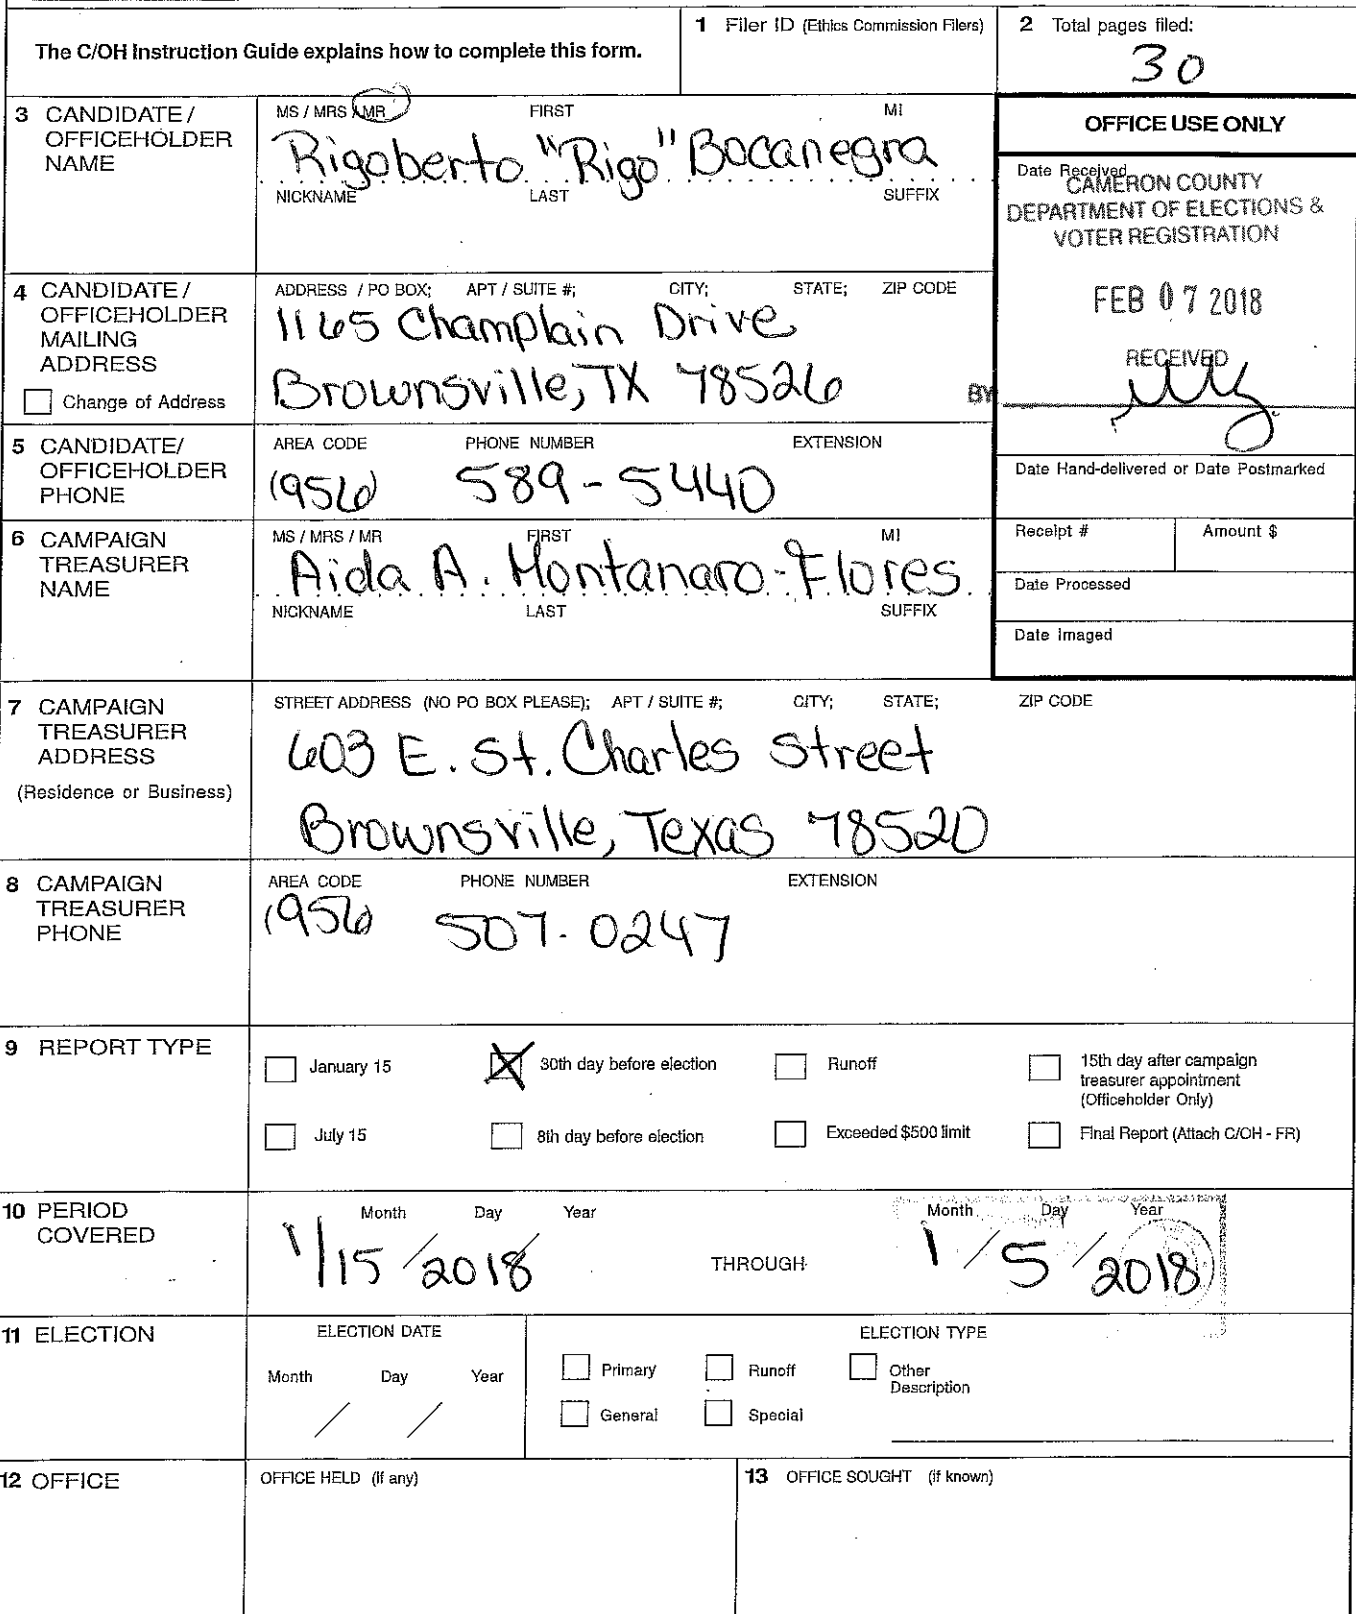 The C/OH Instruction Guide explains how to complete this form.
1 Filer ID (Ethics Commission Filers)
2 Total pages filed:
30
3 CANDIDATE / OFFICEHOLDER NAME
MS / MRS / MR FIRST MI
Rigoberto "Rigo" Bocanegra
NICKNAME LAST SUFFIX
OFFICE USE ONLY
Date Received
CAMERON COUNTY
DEPARTMENT OF ELECTIONS &
VOTER REGISTRATION
FEB 07 2018
RECEIVED
BY
4 CANDIDATE / OFFICEHOLDER MAILING ADDRESS
Change of Address
ADDRESS / PO BOX; APT / SUITE #; CITY; STATE; ZIP CODE
1165 Champlain Drive
Brownsville, TX 78526
5 CANDIDATE/ OFFICEHOLDER PHONE
AREA CODE PHONE NUMBER EXTENSION
(956) 589-5440
Date Hand-delivered or Date Postmarked
Receipt # Amount $
Date Processed
Date Imaged
6 CAMPAIGN TREASURER NAME
MS / MRS / MR FIRST MI
Aida A. Montanaro-Flores
NICKNAME LAST SUFFIX
7 CAMPAIGN TREASURER ADDRESS
(Residence or Business)
STREET ADDRESS (NO PO BOX PLEASE); APT / SUITE #; CITY; STATE; ZIP CODE
603 E. St. Charles Street
Brownsville, Texas 78520
8 CAMPAIGN TREASURER PHONE
AREA CODE PHONE NUMBER EXTENSION
(956) 507-0247
9 REPORT TYPE
January 15
30th day before election
Runoff
15th day after campaign treasurer appointment (Officeholder Only)
July 15
8th day before election
Exceeded $500 limit
Final Report (Attach C/OH - FR)
10 PERIOD COVERED
Month Day Year
1/15/2018
THROUGH
Month Day Year
1/5/2018
11 ELECTION
ELECTION DATE
Month Day Year
/ /
ELECTION TYPE
Primary
Runoff
Other Description
General
Special
12 OFFICE
OFFICE HELD (if any)
13 OFFICE SOUGHT (if known)